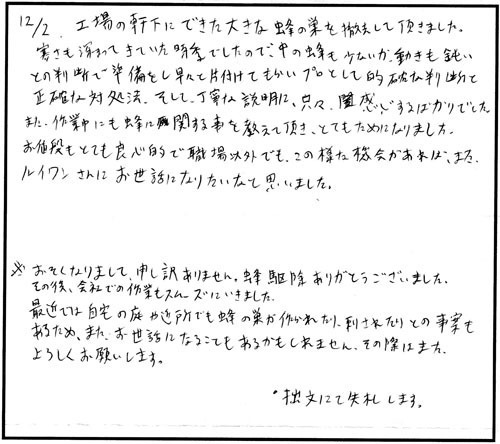 12/2、工場の軒下にできた大きな蜂の巣を撤去して頂きました。
寒さも深まってきていた時季でしたので、中の蜂も少ないか、動きも鈍い
との判断で準備をし早々と片付けてもらいプロとして的確な判断と
正確な対処法、そして、丁寧な説明に、只々、関感心するばかりでした
また、作業中にも蜂に関する事を教えて頂き、とてもためになりました。
お値段もとても良心的で職場以外でも、この様な機会があれば、また、
ルイワンさんにお世話になりたいなと思いました。
※ おそくなりまして、申し訳ありません。蜂駆除ありがとうございました。
その後、会社での作業もスムーズにいきました。
最近では自宅の庭や近所でも蜂の巣が作かれたり、刺されたりとの事案も
あるため、また、お世話になることもあるかもしれません、その際はまた、
よろしくお願いします。
・拙文にて失礼します。